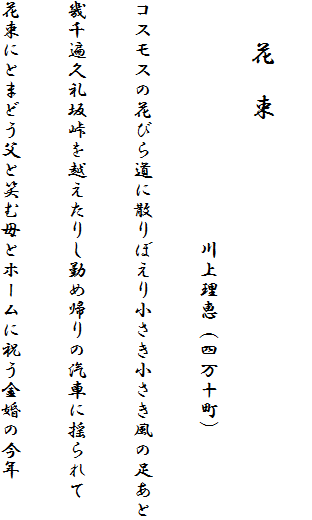 花束
川上理恵(四万十町)
コスモスの花びら道に散りぼえり小さき小さき風の足あと
幾千遍久礼坂峠を越えたりし勤め帰りの汽車に揺られて
花束にとまどう父と笑む母とホームに祝う金婚の今年